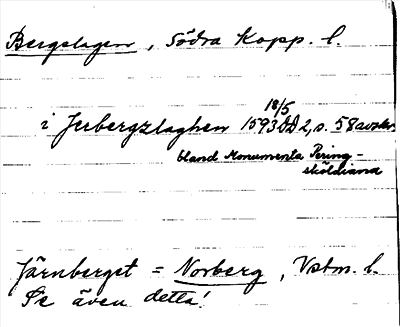 Bergslagen, Södra Kopp. l.
18/5
i Jerbergzlaghen 1593 DD 2, s. 58 avskr.
bland Monumenta Pering-
sköldiana
Järnberget = Norberg, Vstm. l.
Se även detta!